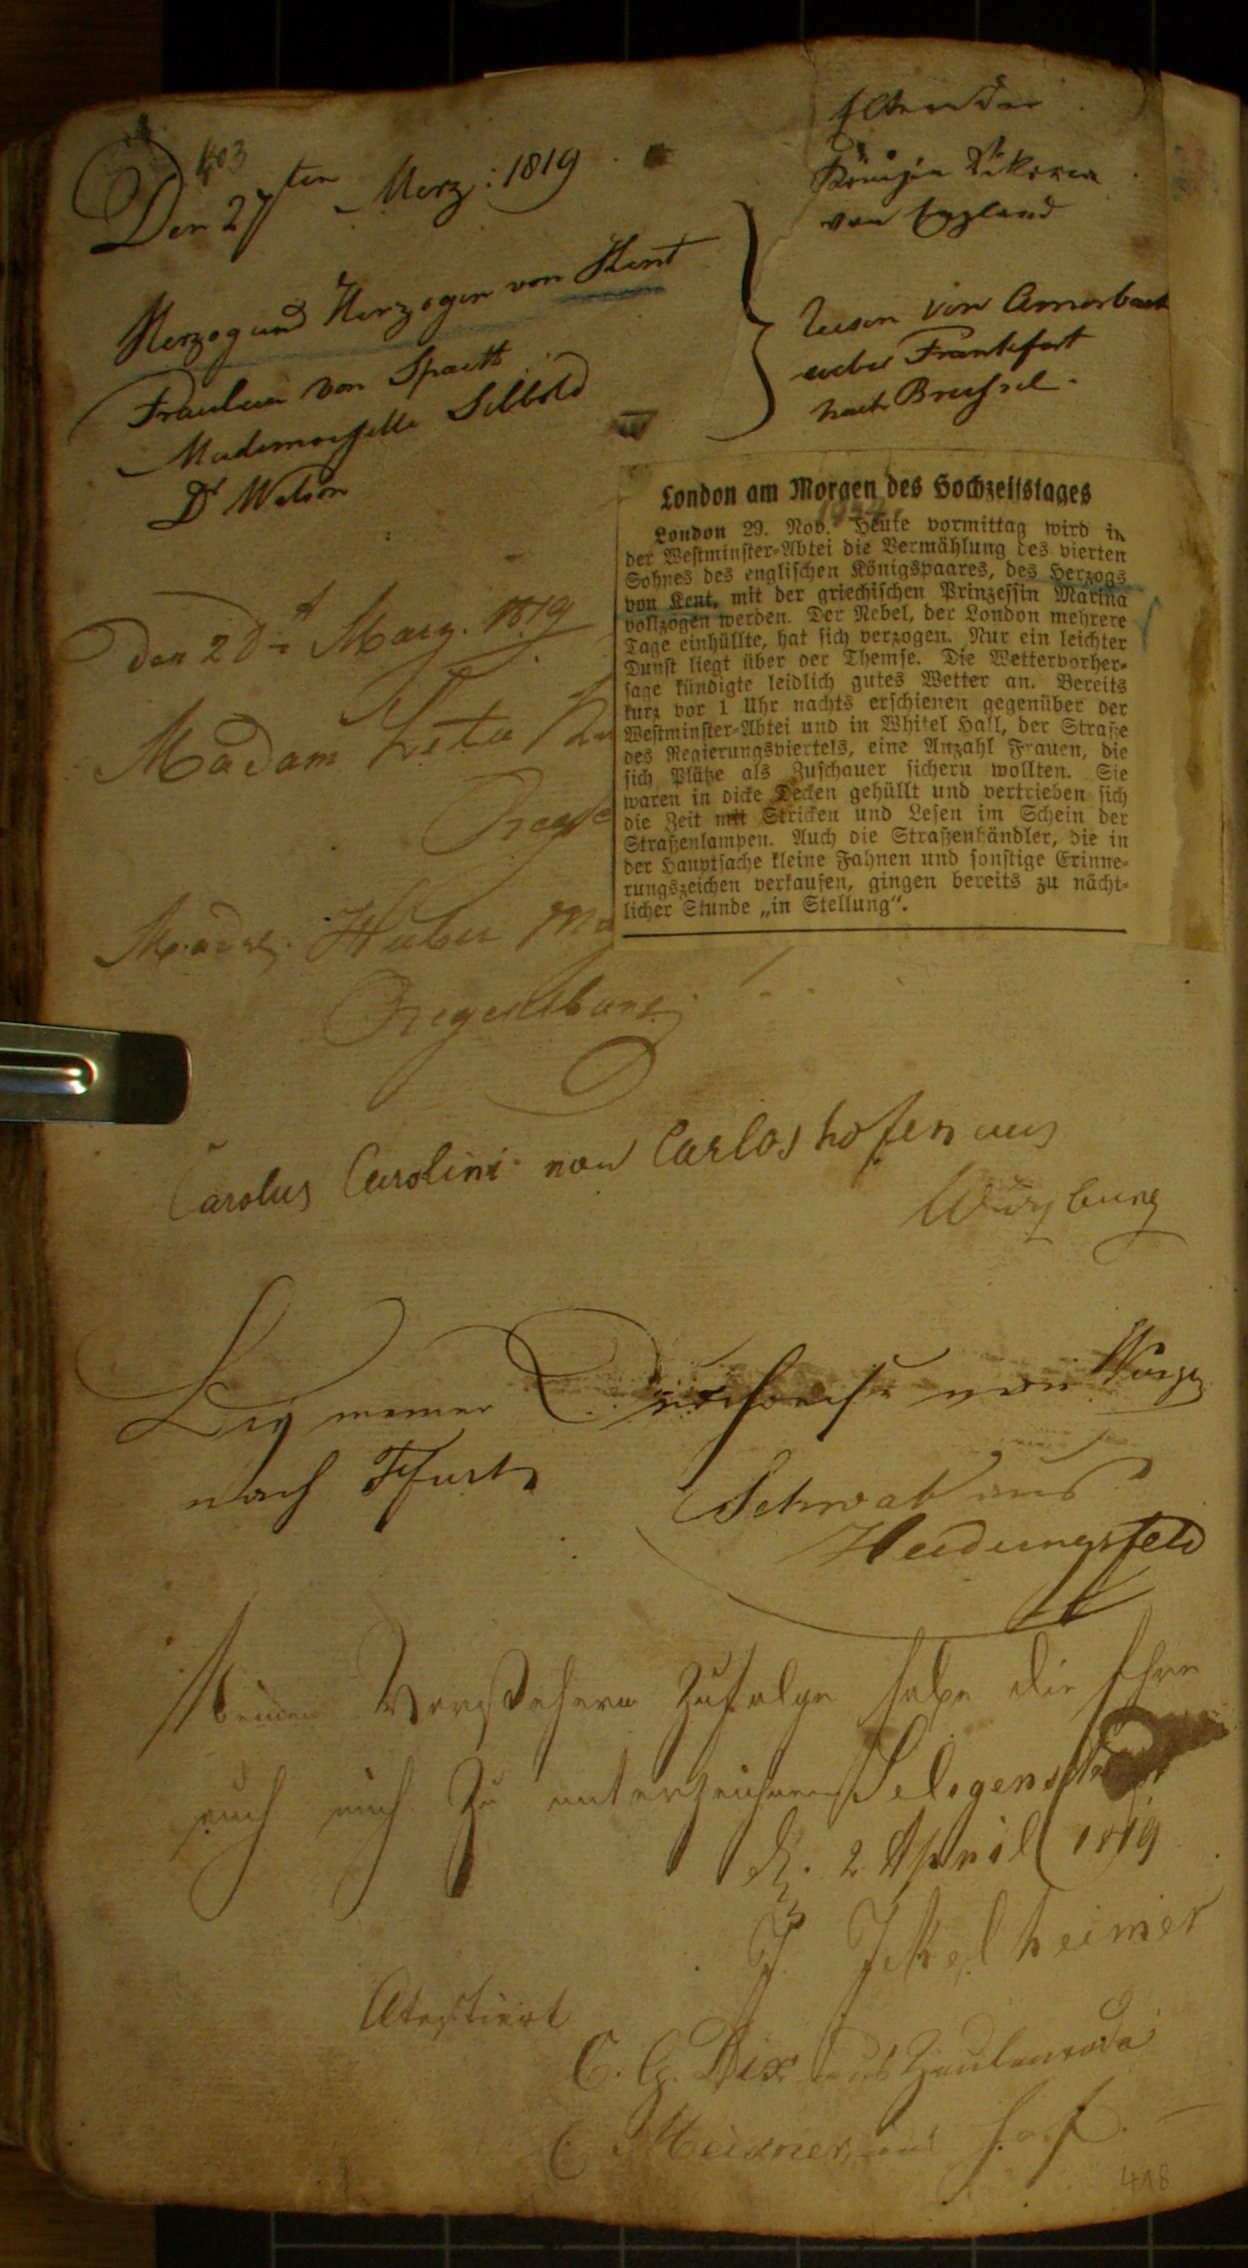 403
Den 27ten Merz: 1819
Herzog und Herzogin von Kent
Fraulein von Spaeth
Mademoiselle Sibold
Dr Wilson
Eltern der
Königin Viktoria
von England
reisen von Amorbach
ueber Frankfort
nach Bruhsel.
London am Morgen des Hochzeitstages
1934.
London 29. Nov. Heute vormittag wird in
der Westminster-Abtei die Vermählung des vierten
Sohnes des englischen Königspaares, des Herzogs
von Kent, mit der griechischen Prinzessin Marina
vollzogen werden. Der Nebel, der London mehrere
Tage einhüllte, hat sich verzogen. Nur ein leichter
Dunst liegt über der Themse. Die Wettervorher-
sage kündigte leidlich gutes Wetter an. Bereits
kurz vor 1 Uhr nachts erschienen gegenüber der
Westminster-Abtei und in Whitel Hall, der Straße
des Regierungsviertels, eine Anzahl Frauen, die
sich Plätze als Zuschauer sichern wollten. Sie
waren in dicke Decken gehüllt und vertrieben sich
die Zeit mit Stricken und Lesen im Schein der
Straßenlampen. Auch die Straßenhändler, die in
der Hauptsache kleine Fahnen und sonstige Erinne-
rungszeichen verkaufen, gingen bereits zu nächt-
licher Stunde „in Stellung".
den 28t Marz. 1819
Madam
Huber
Regensburg
Carolus Carolini von Carloshofen aus
Würzburg
Bey meiner Durchreise von Würzb
nach Ffurth
Schwab aus
Heidungsfeld
Meinen Vorstehern Zufolge habe die Ehre
auch mich zu unterzeichnen Seligenstadt
d. 2 April 1819
J. Ickelheimer
Atestiert
C. G. Dix aus Zeulenroda
C. Meixner, aus Hof.
418